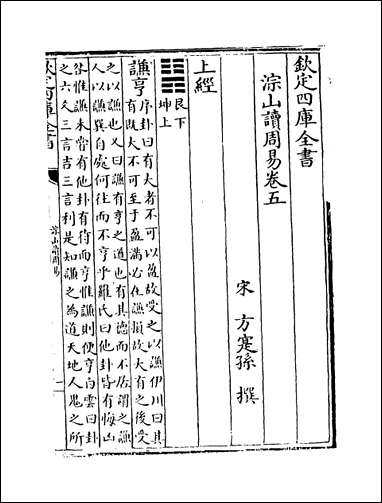 欽定四庫全書
淙山讀周易卷五
宋 方寔孫 撰
上經
艮下
坤上
謙亨序卦曰有大者不可以盈故受之以謙伊川曰其
有既大不可至于盈滿必在謙損故大有之後受
之以謙也又曰謙有亨之道也有其德而不居謂之謙
人以謙巽自處何往而不亨乎羅氏曰他卦皆有悔凶
咎惟謙未嘗有他卦有待而亨惟謙則便亨白雲曰卦
之六爻三言吉三言利是知謙之為道天地人鬼之所
欽定四庫全書
淙山讀周易
一